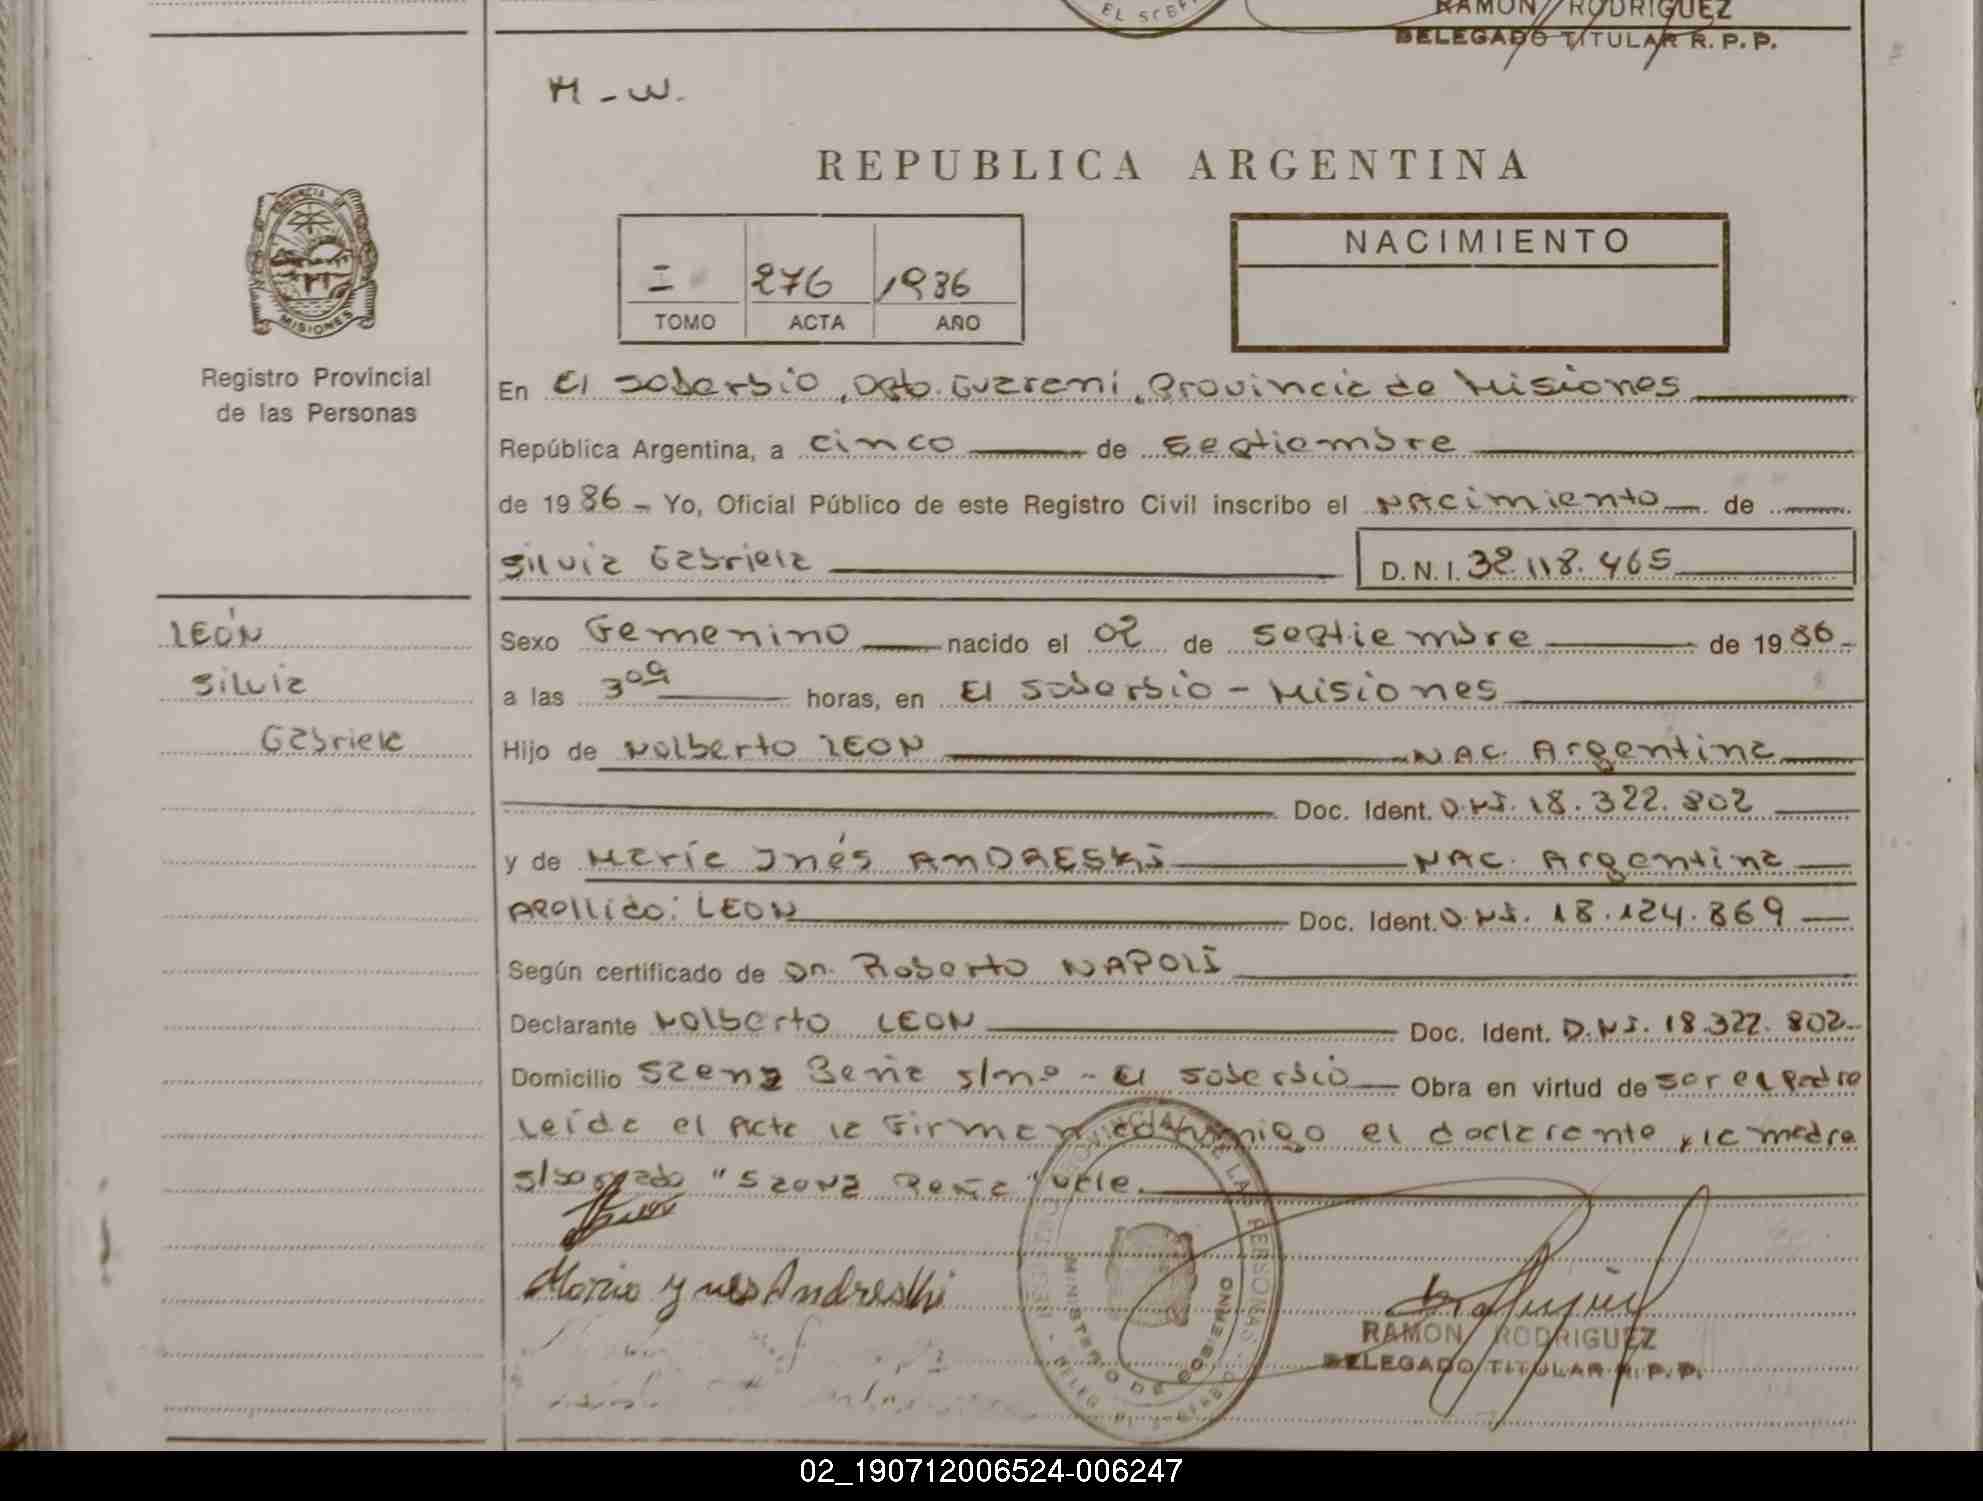 EL SOBER
RAMON RODRIGUEZ
DELEGADO TITULAR R. P. P.
M - W.
REPUBLICA ARGENTINA
PROVINCIA DE
MISIONES
Registro Provincial
de las Personas
I 276 1986
TOMO ACTA AÑO
NACIMIENTO
En El Soberbio, Dpto. Guaraní, Provincia de Misiones
República Argentina, a cinco de Septiembre
de 1986 - Yo, Oficial Público de este Registro Civil inscribo el Nacimiento de
Silvia Gabriela D. N. I. 32.118.465
LEÓN
Silvia
Gabriela
Sexo Femenino nacido el 02 de Septiembre de 1986 -
a las 3 horas, en El Soberbio - Misiones
Hijo de Nolberto LEON NAC. Argentina
Doc. Ident. D.N.I. 18.322.802
y de María Inés ANDRESKI NAC. Argentina
Apellido: LEON Doc. Ident. D.N.I. 18.124.869
Según certificado de Dn. Roberto NAPOLI
Declarante Nolberto LEON Doc. Ident. D.N.I. 18.322.802-
Domicilio Saenz Peña s/nº - El Soberbio Obra en virtud de ser el padre
Leída el Acta la Firman conmigo el declarante y la madre
s/borrado "Saenz Peña" vale.
Maria Ynes Andreski
REGISTRO PROVINCIAL DE LAS PERSONAS
MINISTERIO DE GOBIERNO
RAMON RODRIGUEZ
DELEGADO TITULAR R. P. P.
02_190712006524-006247